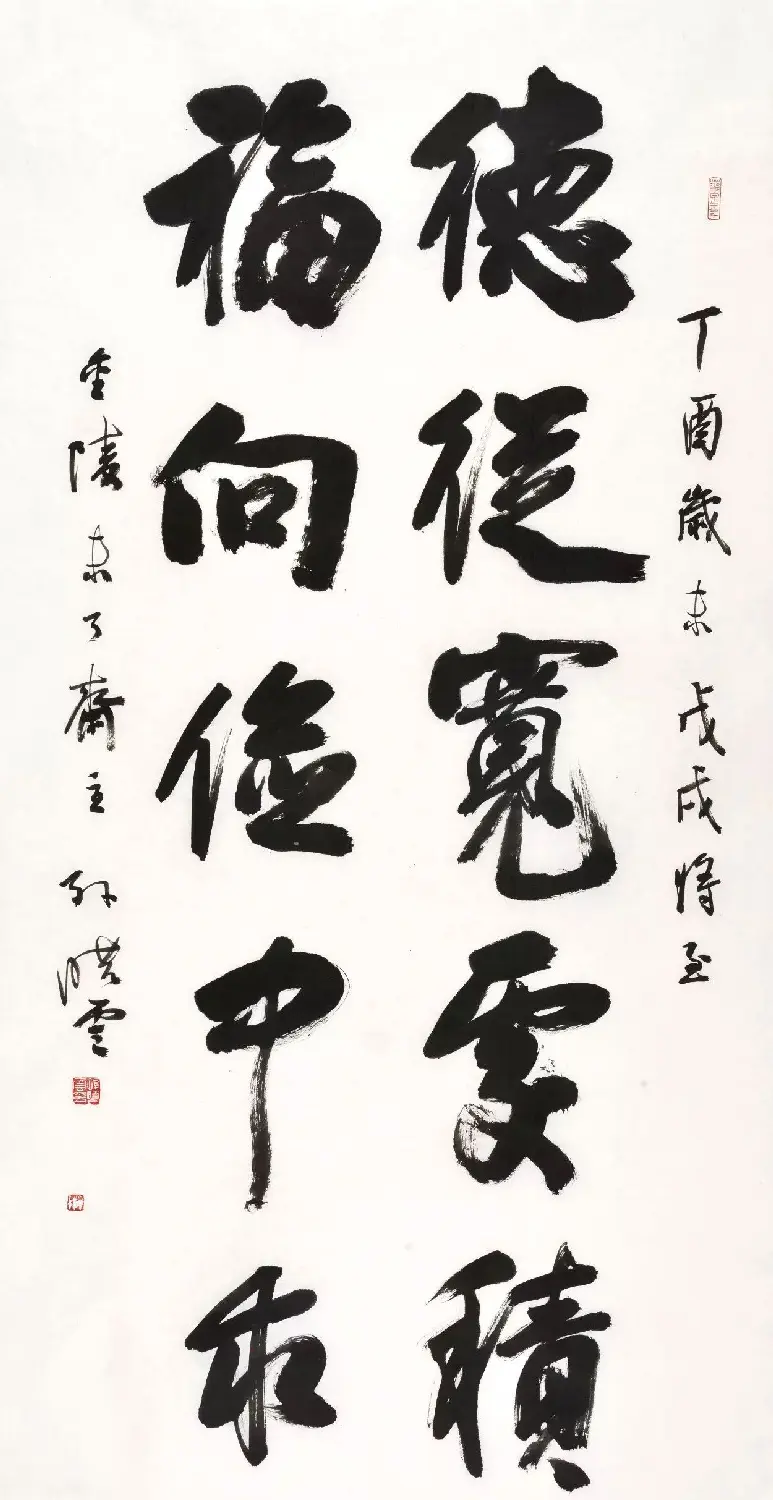 丁酉歲末戊戌將至
德從寬處積
福向儉中求
金陵未了齋主孫曉雲